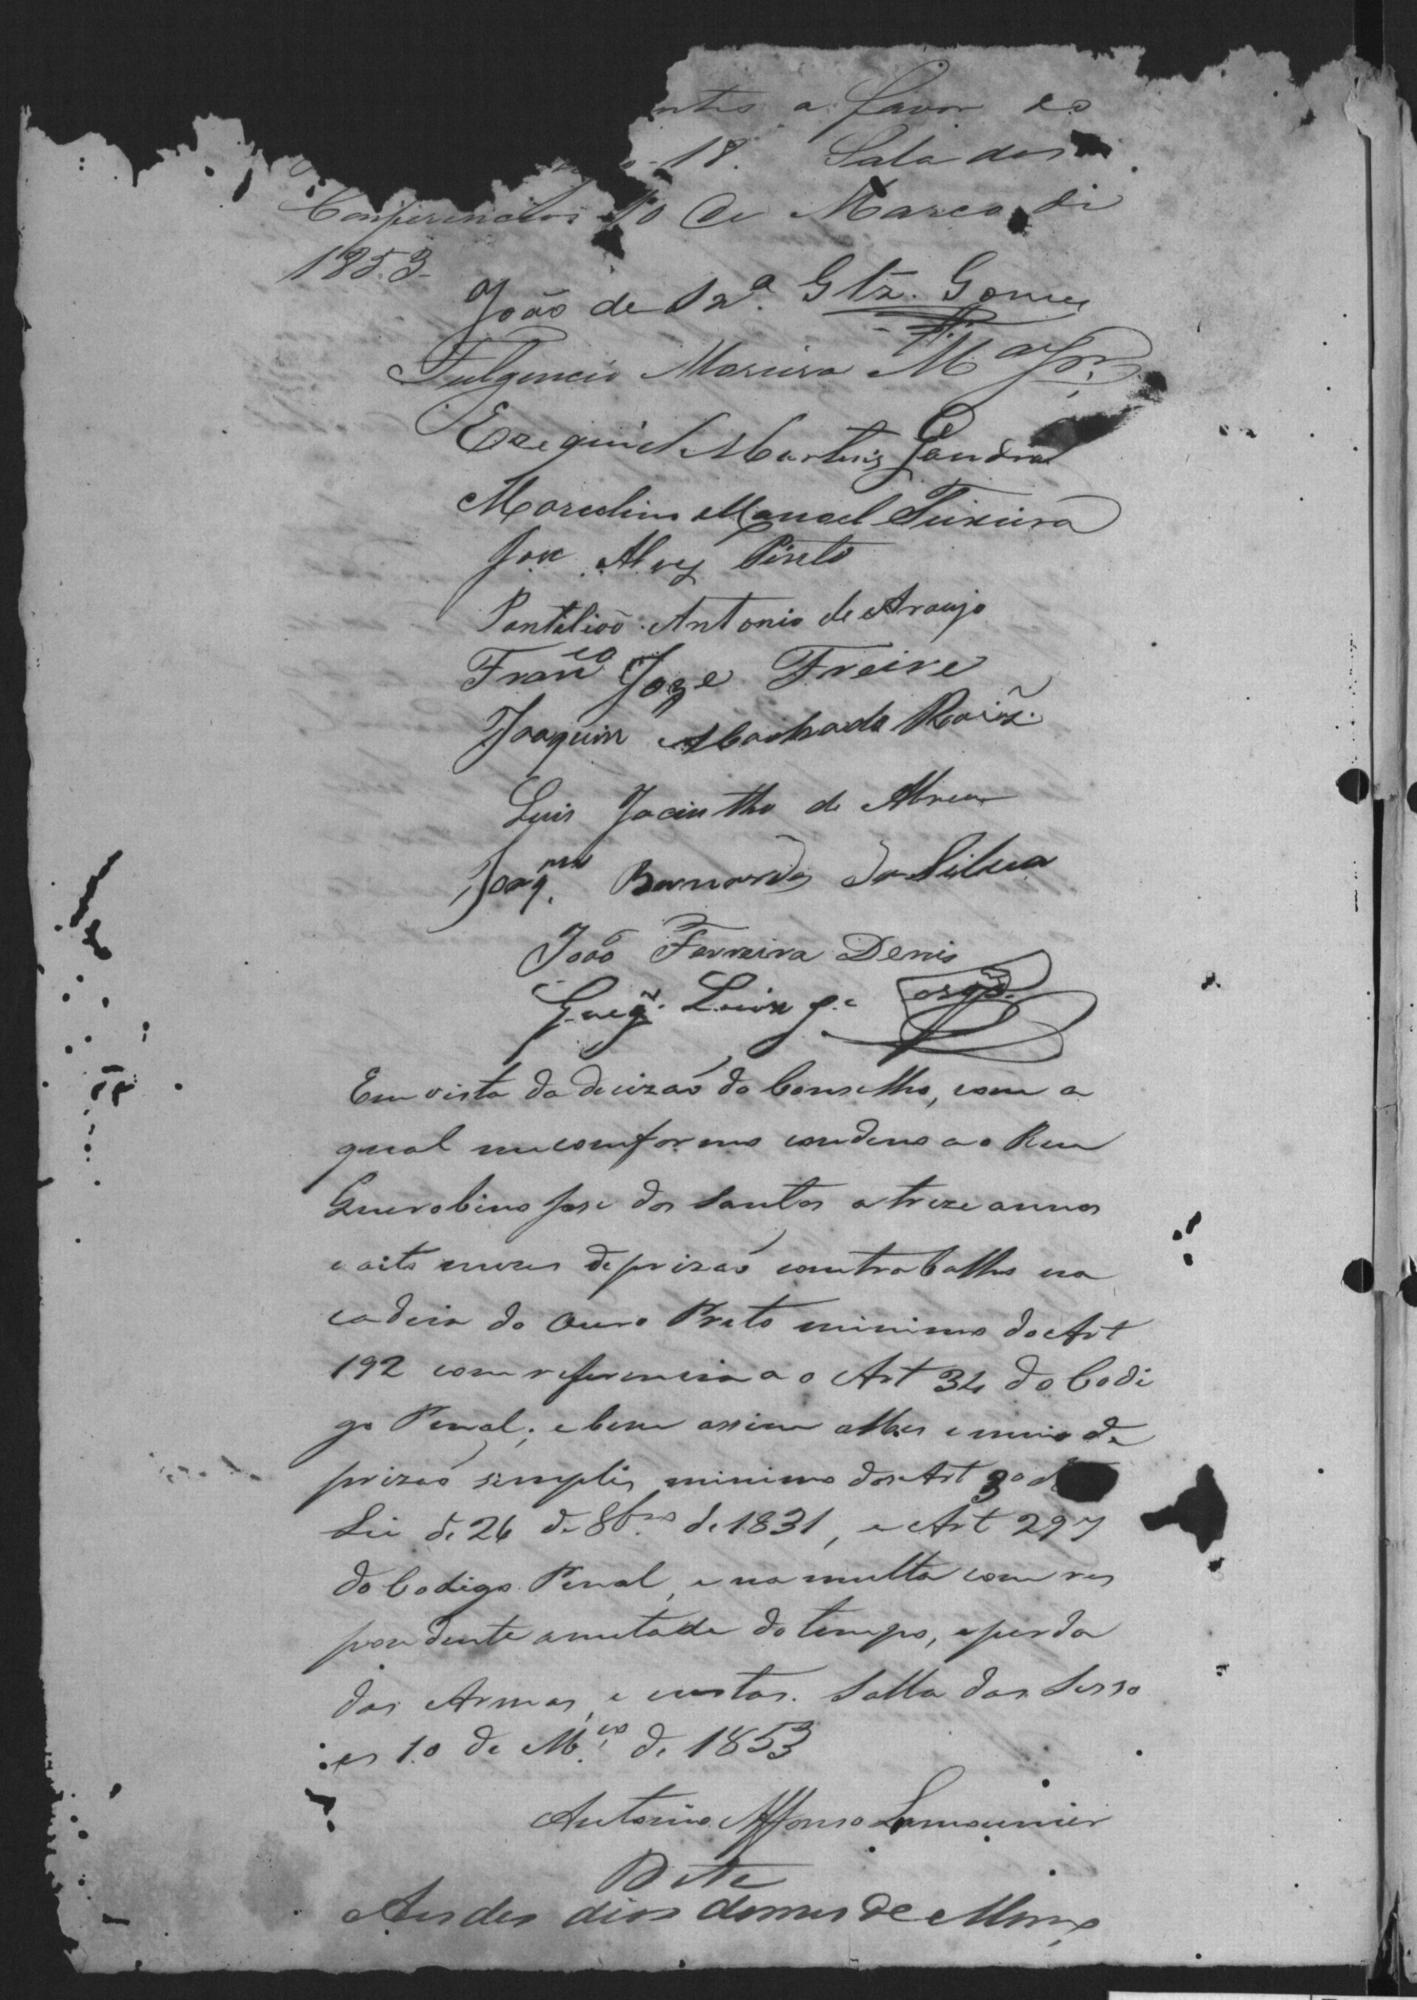 ntes a favor do
18. Sala das
Conferencias 10 de Março di
1853.
João de Sz.ª Glz. Gomes
Fulgencio Moreira M
Ezequiel Martins Gandra
Marcelino Manoel Teixeira
Jose Alvez Pinto
Pantalião Antonio de Araujo
Franco Joze Freire
Joaquim Machado Roiz
Luis Jacintho de Abreu
Joaqm Bernardes da Silva
João Ferreira Denis
Em vista da decizaõ do Conselho, com a
qual me conformo condeno ao Reu
Querobino Jose dos Santos a treze annos
e oito mezes de prizaõ com trabalho na
cadeia do Ouro Preto minimo do Art
192 com referencia ao Art 34 do Codi
go Penal; e bem assim a e meio de
prizaõ simples minimo dos Art 3o d
Lei de 26 de 8bro de 1831, e Art 297
do Codigo Penal, e na multa com res
pondente a metade do tempo, e perda
das Armas, e custas. Salla das Sesso
es 10 de M.ço de 1853
Antonio Affonso Lamounier
Dta
Aos des dias do mes de Março